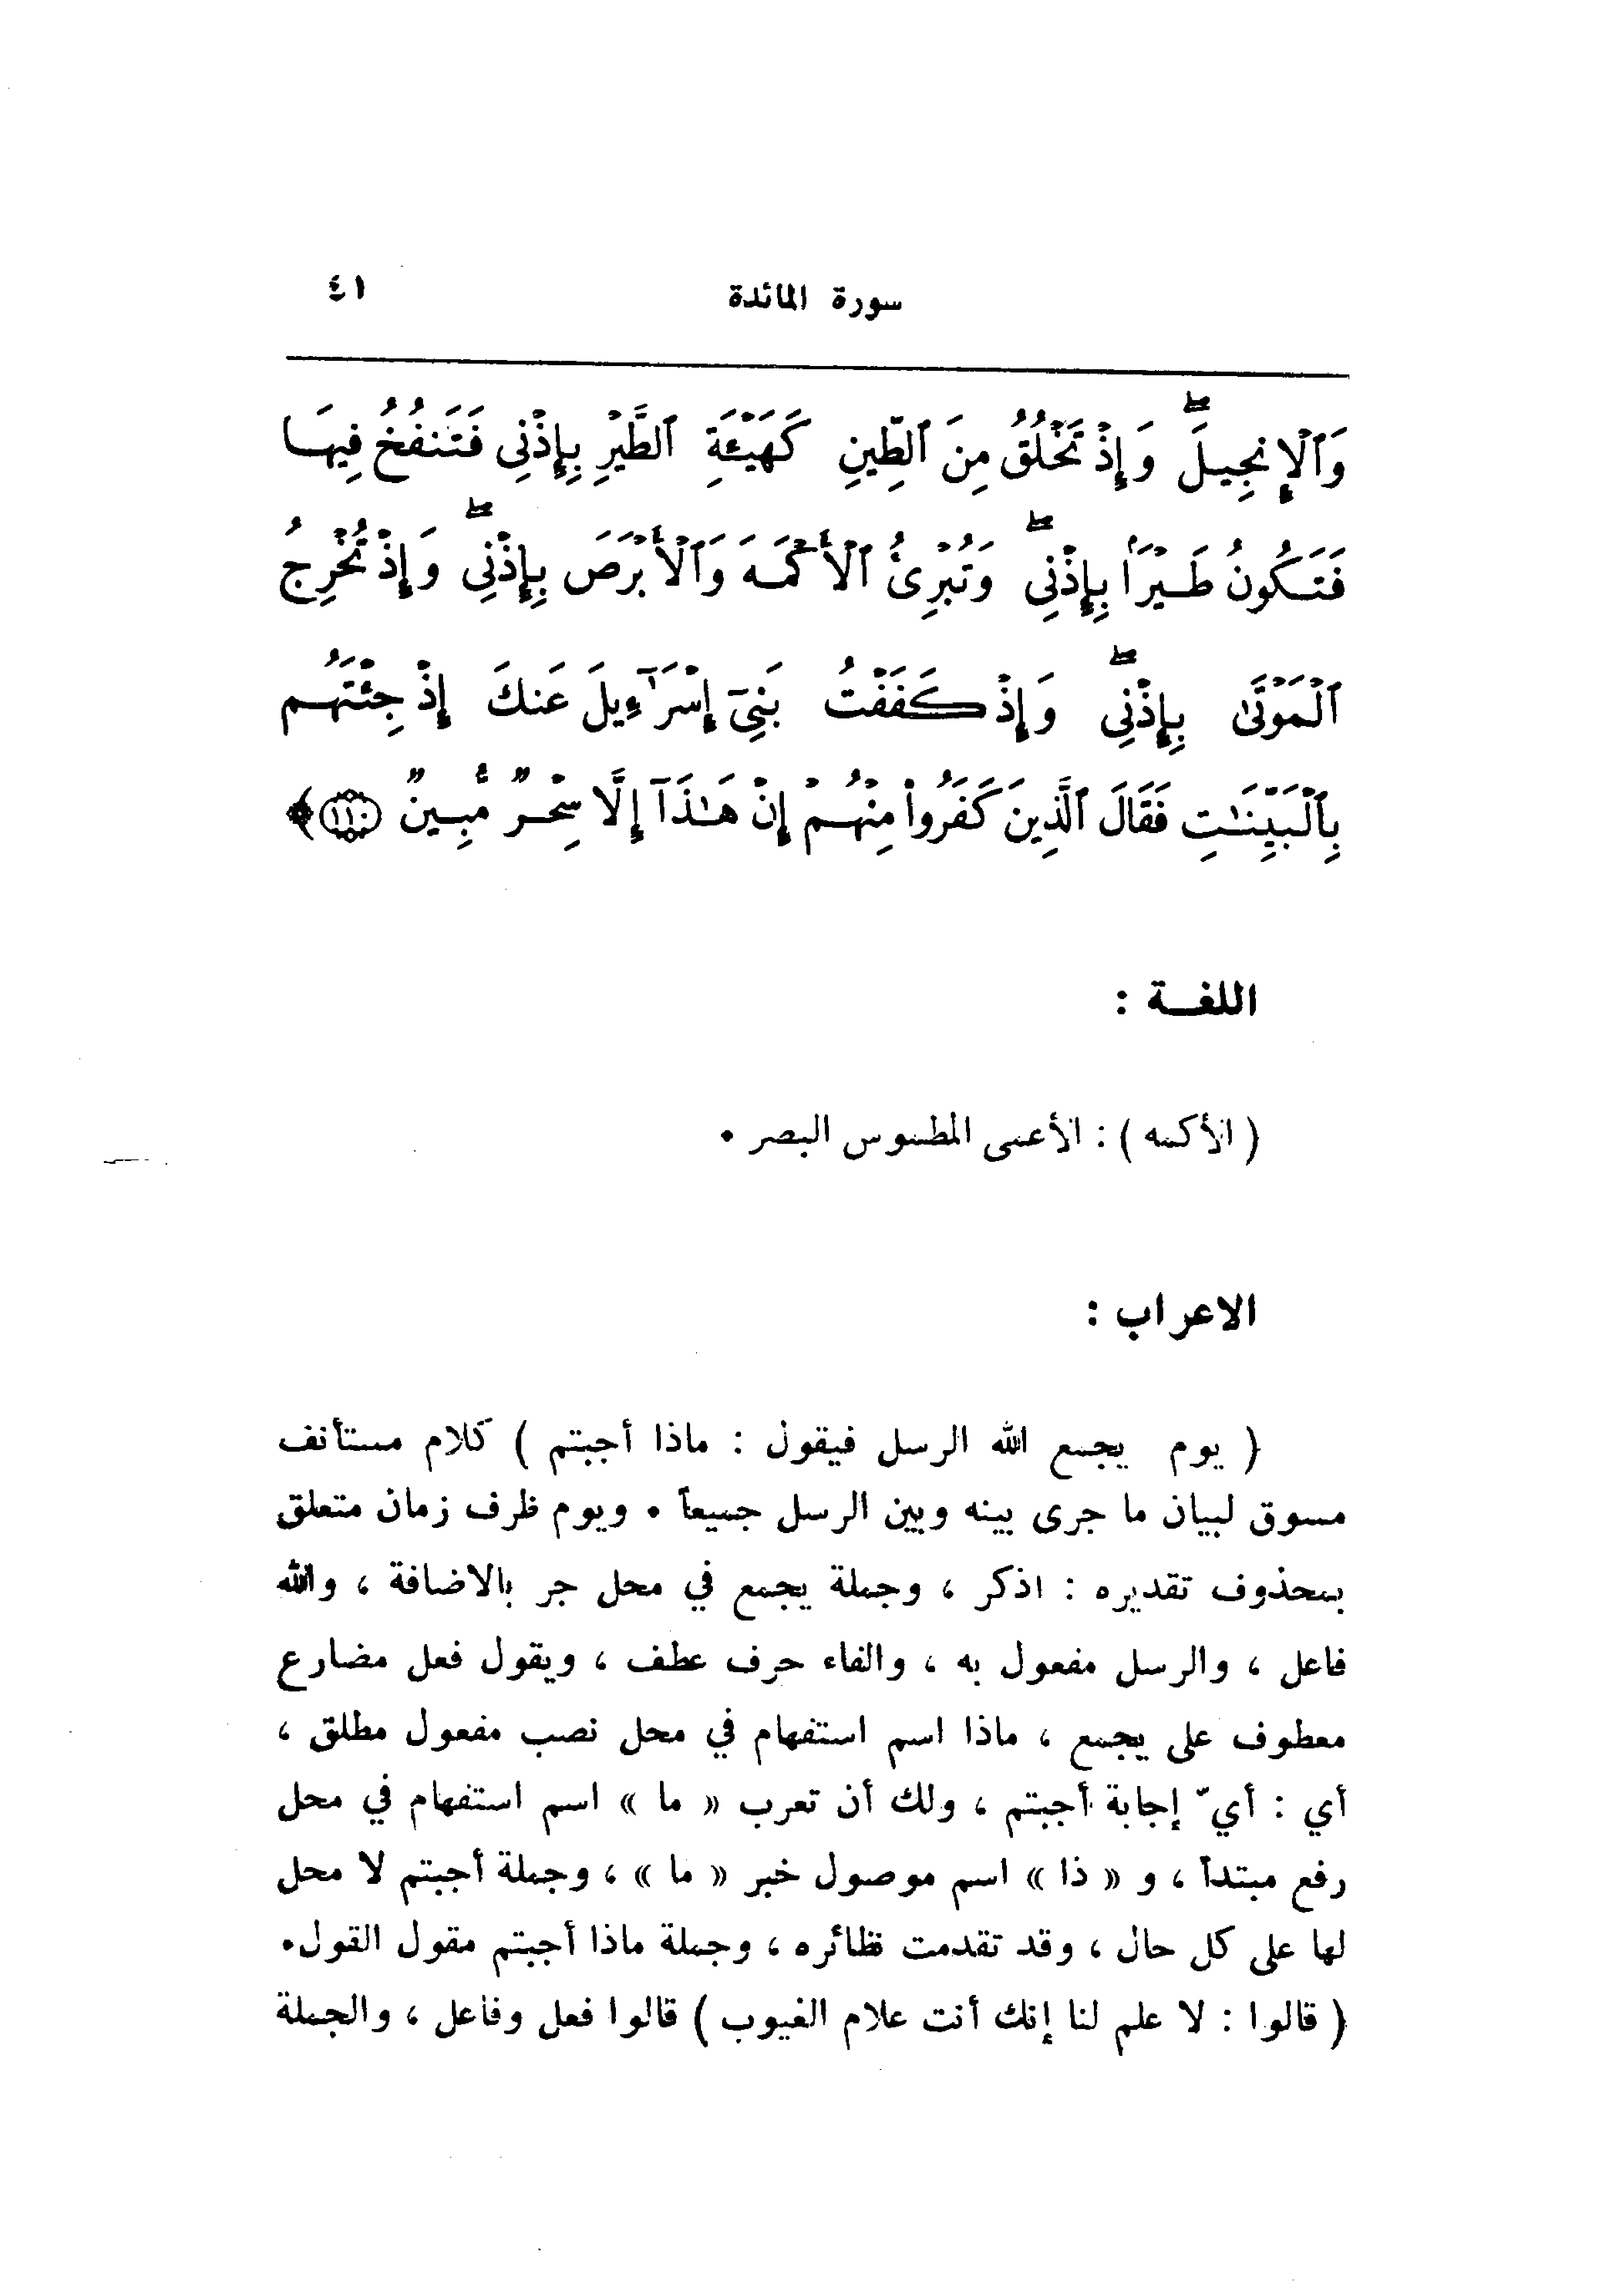 سورة المائدة ٤١
وَٱلْإِنجِيلَ ۖ وَإِذْ تَخْلُقُ مِنَ ٱلطِّينِ كَهَيْـَٔةِ ٱلطَّيْرِ بِإِذْنِى فَتَنفُخُ فِيهَا
فَتَكُونُ طَيْرًۢا بِإِذْنِى ۖ وَتُبْرِئُ ٱلْأَكْمَهَ وَٱلْأَبْرَصَ بِإِذْنِى ۖ وَإِذْ تُخْرِجُ
ٱلْمَوْتَىٰ بِإِذْنِى ۖ وَإِذْ كَفَفْتُ بَنِىٓ إِسْرَٰٓءِيلَ عَنكَ إِذْ جِئْتَهُم
بِٱلْبَيِّنَٰتِ فَقَالَ ٱلَّذِينَ كَفَرُوا۟ مِنْهُمْ إِنْ هَٰذَآ إِلَّا سِحْرٌ مُّبِينٌ ﴿١١٠﴾
اللغة :
( الأكمه ) : الأعمى المطموس البصر ٠
الاعراب :
( يوم يجمع الله الرسل فيقول : ماذا أجبتم ) كلام مستأنف
مسوق لبيان ما جرى بينه وبين الرسل جميعاً ٠ ويوم ظرف زمان متعلق
بمحذوف تقديره : اذكر ، وجملة يجمع في محل جر بالاضافة ، والله
فاعل ، والرسل مفعول به ، والفاء حرف عطف ، ويقول فعل مضارع
معطوف على يجمع ، ماذا اسم استفهام في محل نصب مفعول مطلق ،
أي : أيّ إجابة أجبتم ، ولك أن تعرب « ما » اسم استفهام في محل
رفع مبتدأ ، و « ذا » اسم موصول خبر « ما » ، وجملة أجبتم لا محل
لها على كل حال ، وقد تقدمت نظائره ، وجملة ماذا أجبتم مقول القول٠
( قالوا : لا علم لنا إنك أنت علام الغيوب ) قالوا فعل وفاعل ، والجملة